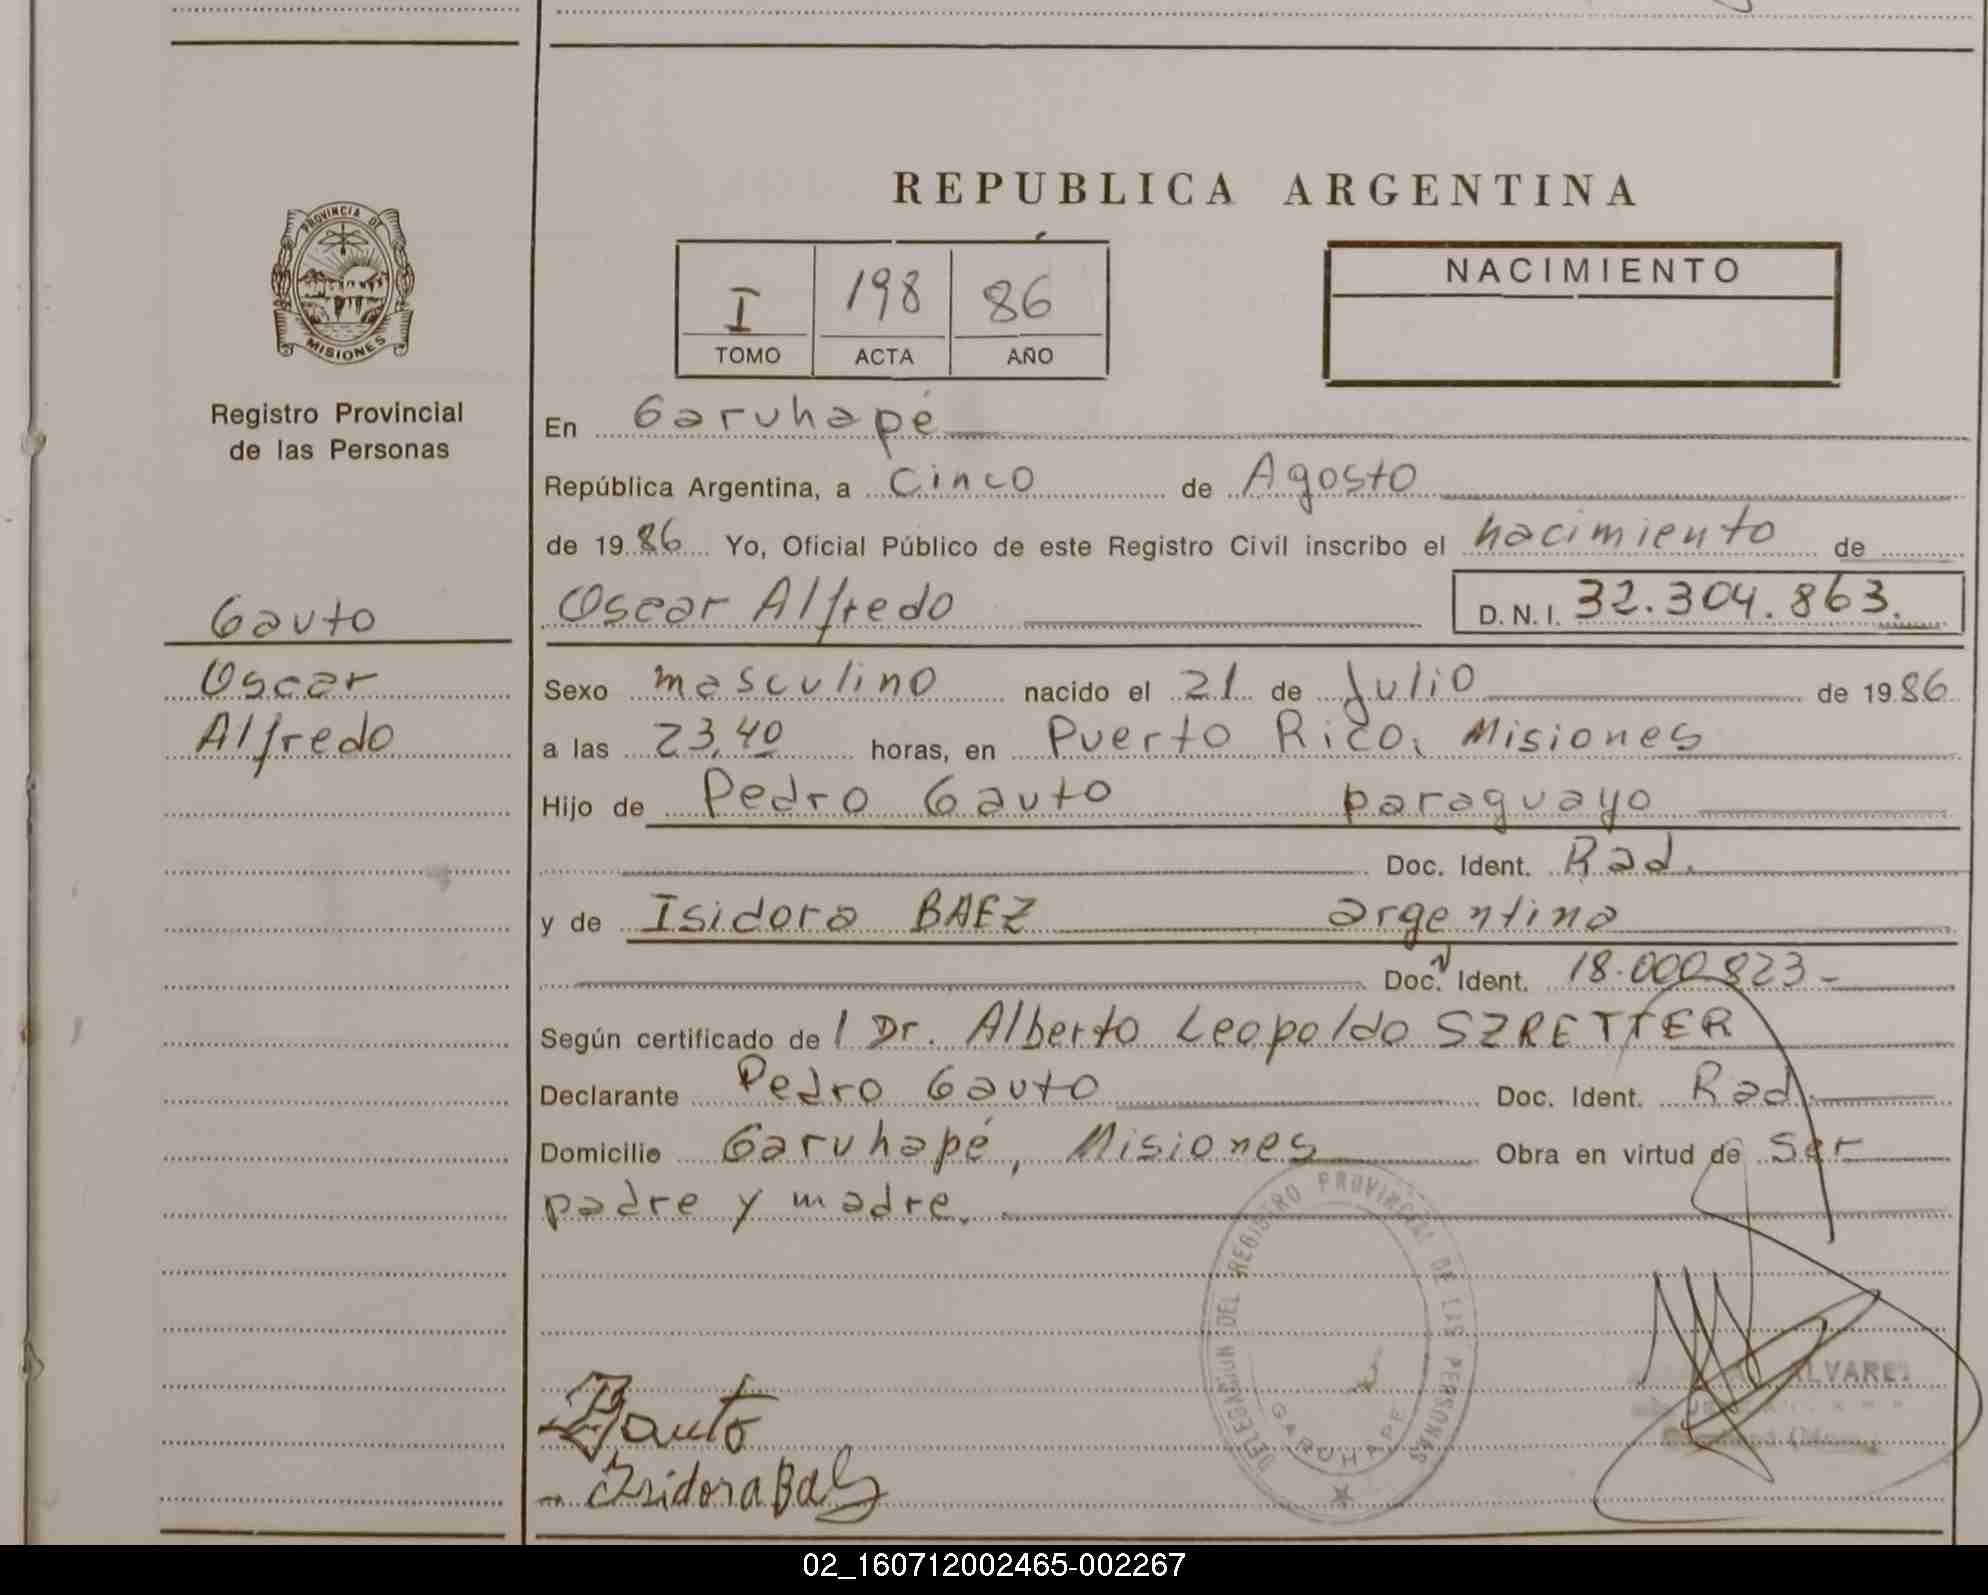 REPUBLICA ARGENTINA
PROVINCIA DE MISIONES
Registro Provincial
de las Personas
I 198 86
TOMO ACTA AÑO
NACIMIENTO
En Garuhapé
República Argentina, a Cinco de Agosto
de 1986 Yo, Oficial Público de este Registro Civil inscribo el nacimiento de
Oscar Alfredo D.N.I. 32.304.863.
Gauto
Oscar
Alfredo
Sexo masculino nacido el 21 de Julio de 1986
a las 23,40 horas, en Puerto Rico, Misiones
Hijo de Pedro Gauto paraguayo
Doc. Ident. Rad.
y de Isidora BAEZ argentina
Doc. Ident. 18.000.823-
Según certificado de Dr. Alberto Leopoldo SZRETTER
Declarante Pedro Gauto Doc. Ident. Rad.
Domicilio Garuhapé, Misiones Obra en virtud de ser
padre y madre.
DELEGACION DEL REGISTRO PROVINCIAL DE LAS PERSONAS
GARUHAPE
ALVAREZ
Gauto
Isidora Baez
02_160712002465-002267